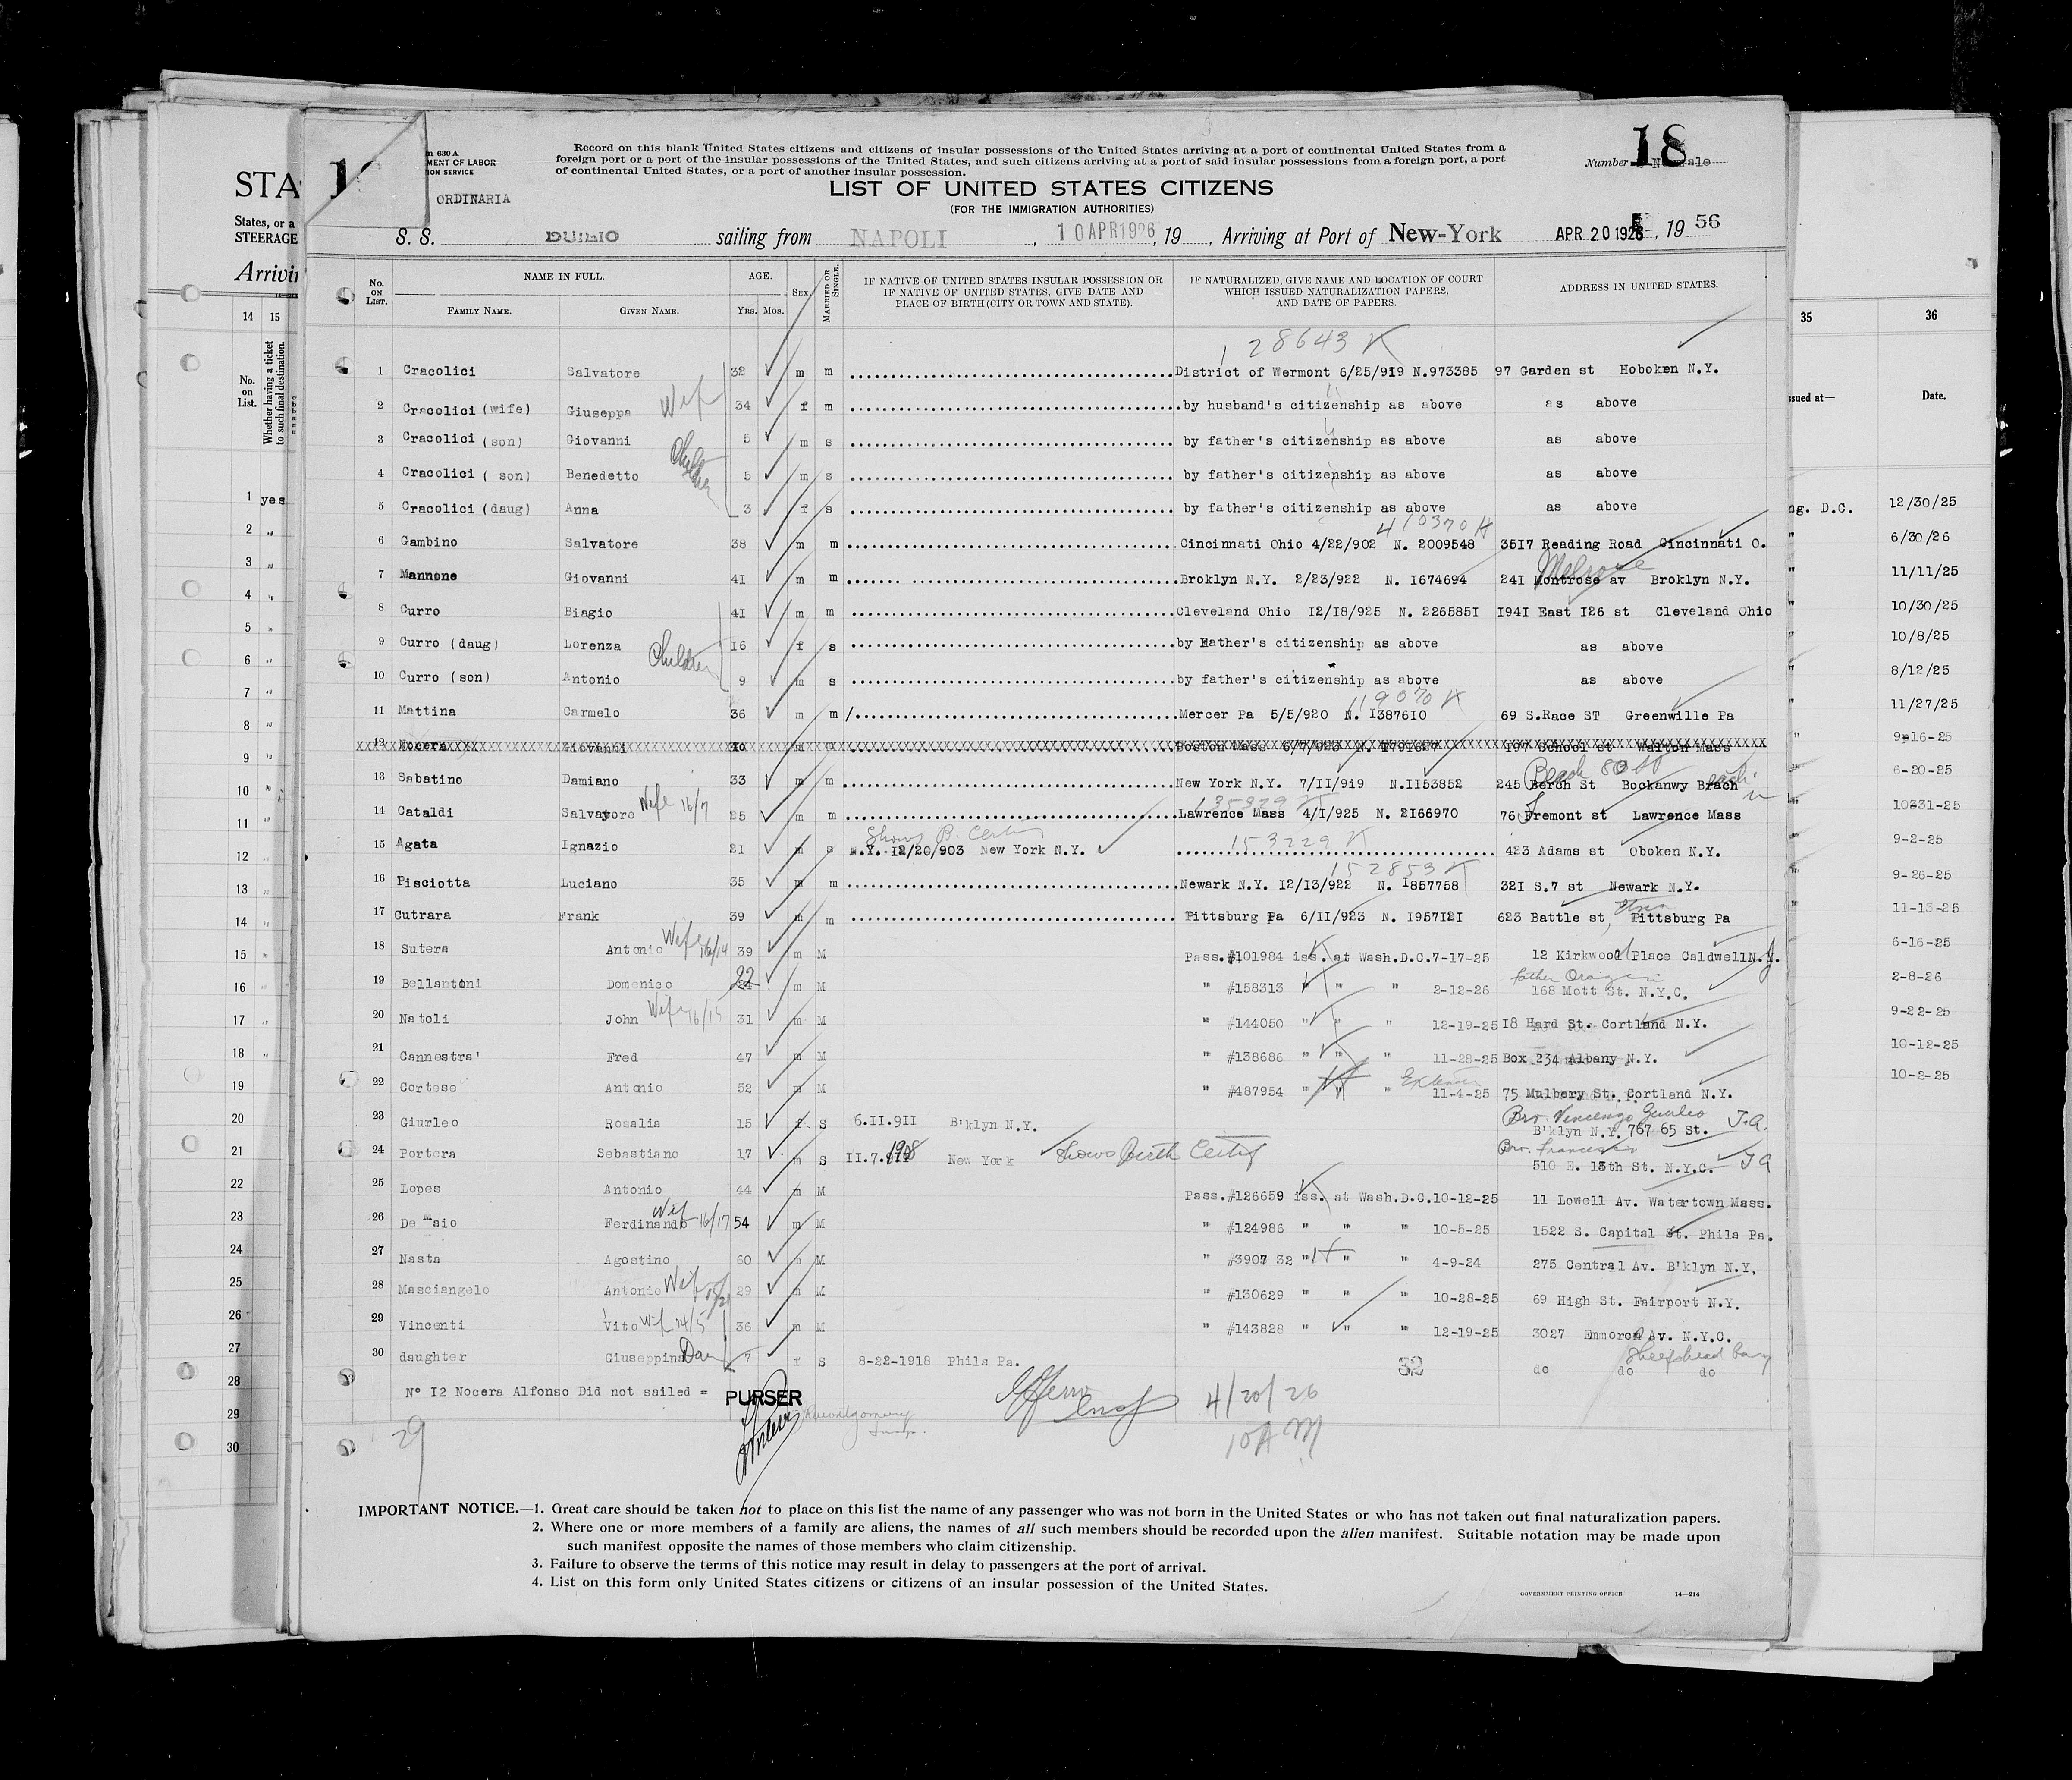 18
Record on this blank United States citizens and citizens of insular possessions of the United States arriving at a port of continental United States from a
foreign port or a port of the insular possessions of the United States, and such citizens arriving at a port of said insular possessions from a foreign port, a port
of continental United States, or a port of another insular possession.
630 A
MENT OF LABOR
ION SERVICE
Number
ORDINARIA
LIST OF UNITED STATES CITIZENS
(FOR THE IMMIGRATION AUTHORITIES)
S. S. DUILIO sailing from NAPOLI, 10 APR 1926, 19 , Arriving at Port of New-York APR 20 1926, 19 56
No. ON LIST.
NAME IN FULL.
FAMILY NAME. GIVEN NAME.
AGE.
YRS. MOS.
SEX.
MARRIED OR SINGLE.
IF NATIVE OF UNITED STATES INSULAR POSSESSION OR
IF NATIVE OF UNITED STATES, GIVE DATE AND
PLACE OF BIRTH (CITY OR TOWN AND STATE).
IF NATURALIZED, GIVE NAME AND LOCATION OF COURT
WHICH ISSUED NATURALIZATION PAPERS,
AND DATE OF PAPERS.
ADDRESS IN UNITED STATES.
128643
1 Cracolici Salvatore 32 m m District of Wermont 6/25/919 N.973385 97 Garden st Hoboken N.Y.
2 Cracolici (wife) Giuseppa Wife 34 f m by husband's citizenship as above as above
3 Cracolici (son) Giovanni 5 m s by father's citizenship as above as above
4 Cracolici ( son) Benedetto Children 5 m s by father's citizenship as above as above
5 Cracolici (daug) Anna 3 f s by father's citizenship as above as above
410370
6 Gambino Salvatore 38 m m Cincinnati Ohio 4/22/902 N. 2009548 3517 Reading Road Cincinnati O.
Melrose
7 Mannone Giovanni 41 m m Broklyn N.Y. 2/23/922 N. 1674694 241 Montrose av Broklyn N.Y.
8 Curro Biagio 41 m m Cleveland Ohio 12/18/925 N. 2265851 1941 East 126 st Cleveland Ohio
9 Curro (daug) Lorenza Children 16 f s by Hather's citizenship as above as above
10 Curro (son) Antonio 9 m s by father's citizenship as above as above
119070
11 Mattina Carmelo 36 m m Mercer Pa 5/5/920 N. 1387610 69 S.Race ST Greenwille Pa
12 Nocera Giovanni School st Walton Mass
Beach 80 st
13 Sabatino Damiano 33 m m New York N.Y. 7/11/919 N.1153852 245 Berch St Bockanwy Brach
135329
14 Cataldi Salvatore Wife 16/7 25 m m Lawrence Mass 4/1/925 N. 2166970 76 Fremont st Lawrence Mass
Shows B. Certif
153229
15 Agata Ignazio 21 m s N.Y. 12/20/903 New York N.Y. 423 Adams st Oboken N.Y.
152853
16 Pisciotta Luciano 35 m m Newark N.Y. 12/13/922 N. 1857758 321 S.7 st Newark N.Y.
17 Cutrara Frank 39 m m Pittsburg Pa 6/11/923 N. 1957121 623 Battle st, Pittsburg Pa
18 Sutera Antonio Wife 16/14 39 m M Pass.#101984 iss. at Wash.D.C.7-17-25 12 Kirkwood Place Caldwell N.J.
19 Bellantoni Domenico 22 m M " #158313 " " " 2-12-26 168 Mott St. N.Y.C.
20 Natoli John Wife 16/15 31 m M " #144050 " " " 12-19-25 18 Hard St. Cortland N.Y.
21 Cannestra' Fred 47 m M " #138686 " " " 11-28-25 Box 234 Albany N.Y.
22 Cortese Antonio 52 m M " #487954 " " " 11-4-25 75 Mulbery St. Cortland N.Y.
Bro. Vincenzo Giurleo
23 Giurleo Rosalia 15 f S 6.II.9II B'klyn N.Y. B'klyn N.Y. 767 65 St.
Bro. Francesco
24 Portera Sebastiano 17 m S II.7.9II 1908 New York Shows Birth Certif 510 E. 13th St. N.Y.C.
25 Lopes Antonio 44 m M Pass.#126659 iss. at Wash.D.C.10-12-25 11 Lowell Av. Watertown Mass.
26 De Masio Ferdinando Wife 16/17 54 m M " #124986 " " " 10-5-25 1522 S. Capital St. Phila Pa.
27 Nasta Agostino 60 m M " #3907 32 " " " 4-9-24 275 Central Av. B'klyn N.Y.
28 Masciangelo Antonio Wife 29 m M " #130629 " " " 10-28-25 69 High St. Fairport N.Y.
29 Vincenti Vito Wife 14/5 36 m M " #143828 " " " 12-19-25 3027 Emmorca Av. N.Y.C.
Sheepshead Bay
30 daughter Giuseppina Dau 7 f S 8-22-1918 Phila Pa. do do do
32
Nº 12 Nocera Alfonso Did not sailed =
PURSER
4/20/26
10 AM
29
IMPORTANT NOTICE.—1. Great care should be taken not to place on this list the name of any passenger who was not born in the United States or who has not taken out final naturalization papers.
2. Where one or more members of a family are aliens, the names of all such members should be recorded upon the alien manifest. Suitable notation may be made upon
such manifest opposite the names of those members who claim citizenship.
3. Failure to observe the terms of this notice may result in delay to passengers at the port of arrival.
4. List on this form only United States citizens or citizens of an insular possession of the United States.
GOVERNMENT PRINTING OFFICE 14—214
STA
States, or a
STEERAGE
Arrivin
14 15
No. on List.
Whether having a ticket to such final destination.
1 yes
2 "
3 "
4 "
5 "
6 "
7 "
8 "
9 "
10 "
11 "
12 "
13 "
14 "
15 "
16 "
17 "
18 "
19
20
21
22
23
24
25
26
27
28
29
30
35 36
ssued at— Date.
ng. D.C. 12/30/25
" 6/30/26
" 11/11/25
" 10/30/25
" 10/8/25
" 8/12/25
" 11/27/25
" 9-16-25
" 6-20-25
" 10-31-25
9-2-25
9-26-25
11-13-25
6-16-25
2-8-26
9-22-25
10-12-25
10-2-25